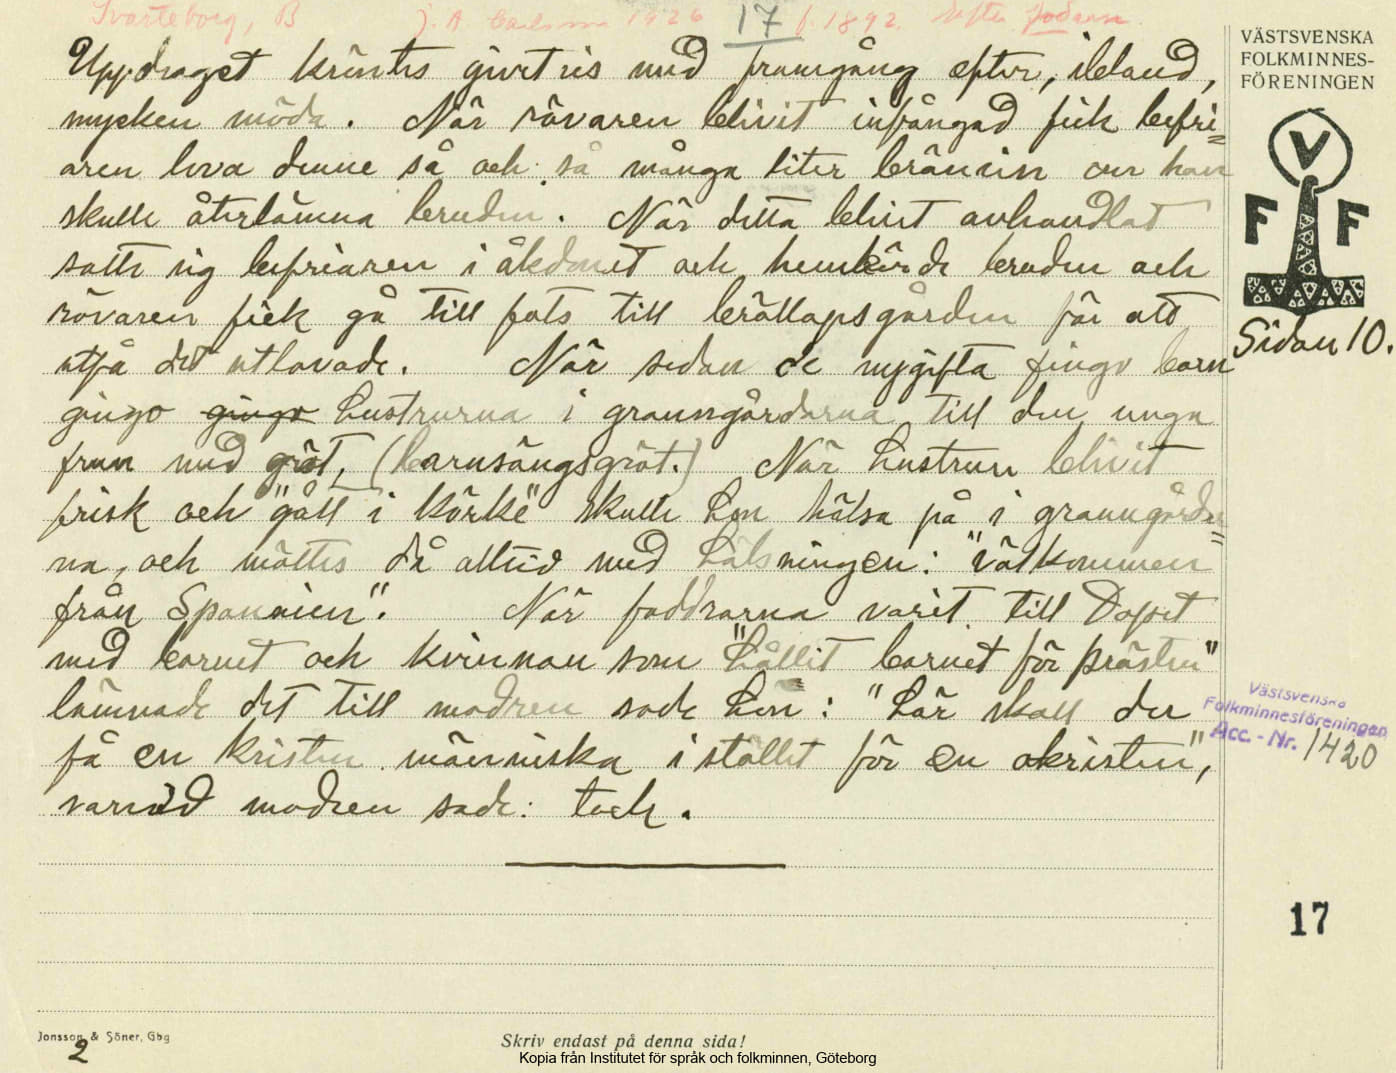 Svarteborg, B J. A. Carlsson 1926 17 f. 1892.
VÄSTSVENSKA
FOLKMINNES-
FÖRENINGEN
V
F F
Sidan 10.
Uppdraget kröntes givetvis med framgång efter, ibland,
mycken möda. När rövaren blivit infångad fick befri=
aren lova denne så och så många liter brännvin om han
skulle återlämna bruden. När detta blivit avhandlat
satte sig befriaren i åkdonet och hemkörde bruden och
rövaren fick gå till fots till bröllopsgården för att
utfå det utlovade. När sedan de nygifta fingo barn
gingo gingo hustrurna i granngårdarna till den unga
frun med gröt, (barnsängsgröt.) När hustrun blivit
frisk och "gått i körke" skulle hon hälsa på i granngårdar=
na, och möttes då alltid med hälsningen: "välkommen
från Spanien". När faddrarna varit till Dopet
med barnet och kvinnan som "hållit barnet för prästen"
lämnade det till modren sade hon: "här skall du
få en kristen människa i stället för en okristen",
varvid modren sade: tack.
Västsvenska
Folkminnesföreningen
Acc. - Nr. 1420
17
Jonsson & Söner, Gbg
2
Skriv endast på denna sida!
Kopia från Institutet för språk och folkminnen, Göteborg